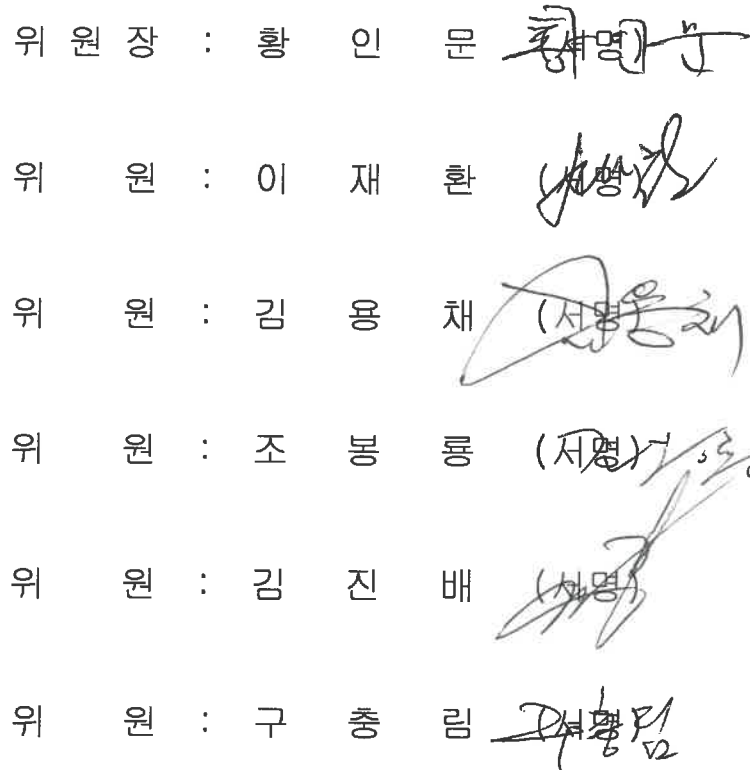 위 원 장 : 황 인 문 (서명)
위 원 : 이 재 환 (서명)
위 원 : 김 용 채 (서명)
위 원 : 조 봉 룡 (서명)
위 원 : 김 진 배 (서명)
위 원 : 구 충 림 (서명)